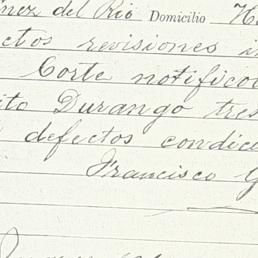 nez del Rio Domicilio
ctos revisiones i
Corte notifico
ito Durango tres
defectos condic
Francisco G